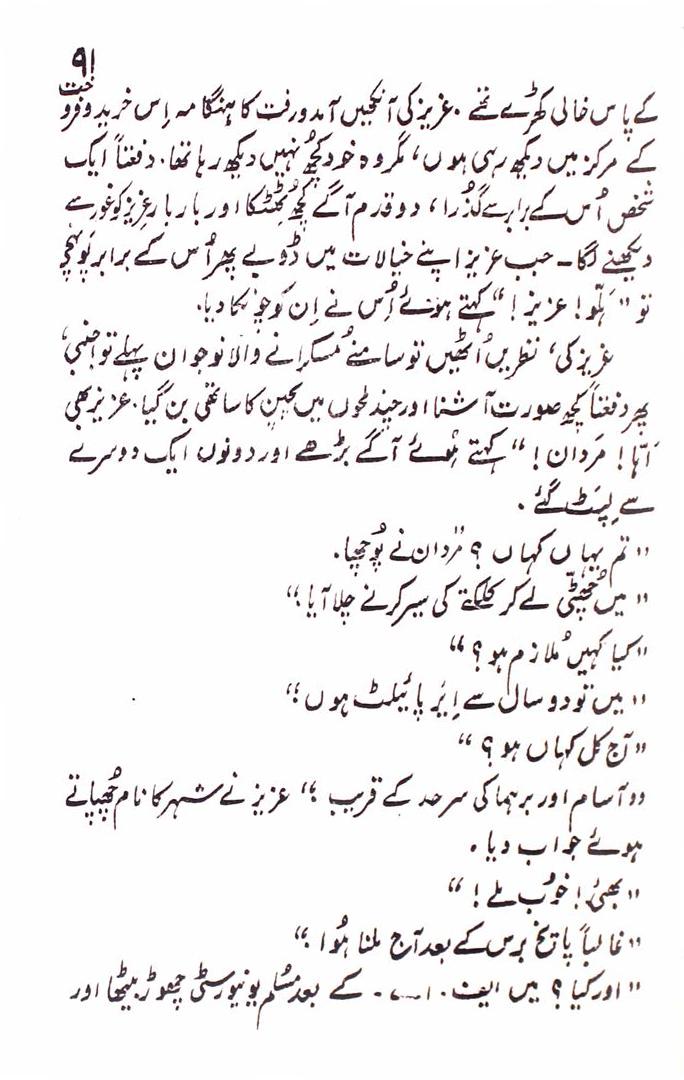 ۹۱
کے پاس خالی کھڑے تھے۔ عزیز کی آنکھیں آمد و رفت کا ہنگامہ اِس خرید و فروخت
کے مرکز میں دیکھ رہی ہوں، مگر وہ خود کچھ نہیں دیکھ رہا تھا۔ دفعتاً ایک
شخص اُس کے برابر سے گذُرا، دو قدم آگے کچھ ٹھِٹکا اور بار بار عزیز کو غور سے
دیکھنے لگا۔ جب عزیز اپنے خیالات میں ڈوبے پھر اُس کے برابر پہونچے
تو "ہَلّو! عزیز!" کہتے ہوئے اُس نے اِن کو چونکا دیا۔
عزیز کی، نظریں اُٹھیں تو سامنے مُسکرانے والا نوجوان پہلے تو اجنبی،
پھر دفعتاً کچھ صورت آشنا اور چند لمحوں میں بچپن کا ساتھی بن گیا۔ عزیز بھی
آہا! مَردان!" کہتے ہُوئے آگے بڑھے اور دونوں ایک دوسرے
سے لِپَٹ گئے۔
"تم یہاں کہاں؟ مَردان نے پُوچھا۔
"میں چھُٹّی لے کر کلکتے کی سیر کرنے چلا آیا؛"
"کیا کہیں مُلازم ہو؟"
"میں تو دو سال سے اِیَر پائیلٹ ہوں؛"
"آج کل کہاں ہو؟"
"آسام اور برہما کی سرحد کے قریب؛" عزیز نے شہر کا نام چھُپاتے
ہوئے جواب دیا۔
"بھئی! خوُب ملے!"
"غالباً پانچ برس کے بعد آج ملنا ہُوا؛"
"اور کیا؟ میں ایف۔ اے۔ کے بعد مُسلم یونیورسٹی چھوڑ بیٹھا اور